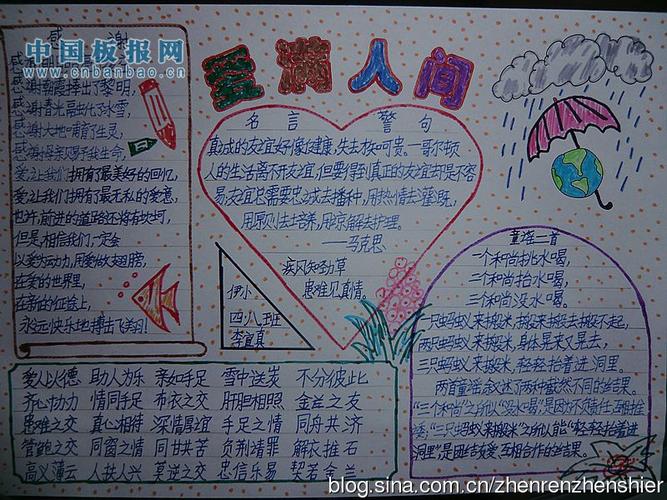 爱满人间
中国板报网
www.cnbanbao.cn
感 谢
感谢朝霞捧出了黎明，
感谢春光融化了冰雪，
感谢大地哺育了生灵，
感谢母亲赐予我生命，
爱让我们拥有最美好的回忆，
爱让我们拥有了最无私的爱意，
也许，前进的道路还将有坎坷，
但是，相信我们一定会
以爱为动力，用爱做翅膀，
在爱的世界里，
在新的征途上，
永远快乐地搏击飞翔！
名言警句
真诚的友谊好像健康，失去才知可贵。一哥尔顿
人的生活离不开友谊，但要得到真正的友谊才是不容
易；友谊总需要忠诚去播种，用热情去灌溉，
用原则去培养，用谅解去护理。
——马克思
疾风知劲草
患难见真情。
伊小
四·八班
李宜真
童谣二首
一个和尚挑水喝，
二个和尚抬水喝，
三个和尚没水喝。
一只蚂蚁来搬米，搬来搬去搬不起，
两只蚂蚁来搬米，身体晃来又晃去，
三只蚂蚁来搬米，轻轻抬着进洞里。
两首童谣叙述了两种截然不同的结果。
“三个和尚”之所以“没水喝”，是因为不负责任、互相推
诿；“三只蚂蚁来搬米”之所以能“轻轻抬着进
洞里”是团结友爱、互相合作的结果。
爱人以德 助人为乐 亲如手足 雪中送炭 不分彼此
齐心协力 情同手足 布衣之交 肝胆相照 金兰之友
患难之交 真心相待 深情厚谊 手足之情 同舟共济
管鲍之交 同窗之情 同甘共苦 负荆请罪 解衣推石
高义薄云 人扶人兴 莫逆之交 忠信乐易 契若金兰
blog.sina.com.cn/zhenrenzhenshier